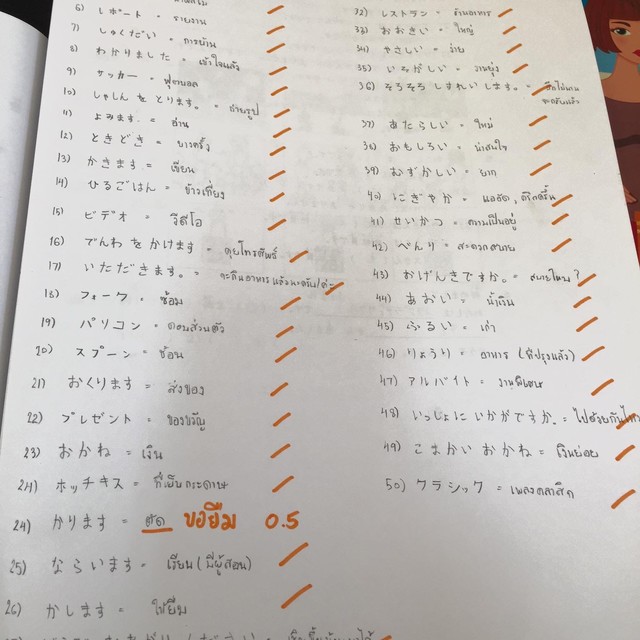 6) レポート = รายงาน
7) しゅくだい = การบ้าน
8) わかりました = เข้าใจแล้ว
9) サッカー = ฟุตบอล
10) しゃしん を とります。 = ถ่ายรูป
11) よみます = อ่าน
12) ときどき = บางครั้ง
13) かきます = เขียน
14) ひるごはん = ข้าวเที่ยง
15) ビデオ = วีดีโอ
16) でんわ を かけます = คุยโทรศัพท์
17) いただきます。 = จะกินอาหารแล้วนะครับ/ค่ะ
18) フォーク = ซ้อม
19) パソコン = คอมส่วนตัว
20) スプーン = ช้อน
21) おくります = ส่งของ
22) プレゼント = ของขวัญ
23) おかね = เงิน
24) ホッチキス = ที่เย็บกระดาษ
24) かります = ตัด ขอยืม 0.5
25) ならいます = เรียน (มีผู้สอน)
26) かします = ให้ยืม
32) レストラン = ร้านอาหาร
33) おおきい = ใหญ่
34) やさしい = ง่าย
35) いそがしい = งานยุ่ง
36) そろそろ しつれい します。 =
37) あたらしい = ใหม่
38) おもしろい = น่าสนใจ
39) むずかしい = ยาก
40) にぎやか = แออัด, ครึกครื้น
41) せいかつ = ความเป็นอยู่
42) べんり = สะดวกสบาย
43) おげんきですか。 = สบายไหม?
44) あおい = น้ำเงิน
45) ふるい = เก่า
46) りょうり = อาหาร (ที่ปรุงแล้ว)
47) アルバイト = งานพิเศษ
48) いっしょに いかがですか。 = ไปด้วยกันไหม
49) こまかい おかね = เงินย่อย
50) クラシック = เพลงคลาสิก